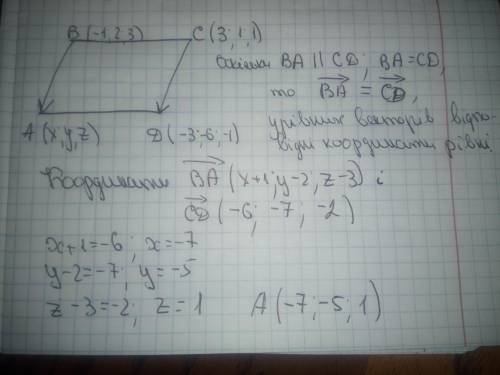 B (-1; 2; 3) C (3; 1; 1)
Оскільки BA || CD; BA=CD,
то BA = CD,
A (x; y; z) D (-3; -6; -1)
у рівних векторів відпо-
відні координати рівні.
Координати BA (x+1; y-2; z-3) і
CD (-6; -7; -2)
x+1=-6; x=-7
y-2=-7; y=-5
z-3=-2; z=1 A (-7; -5; 1)